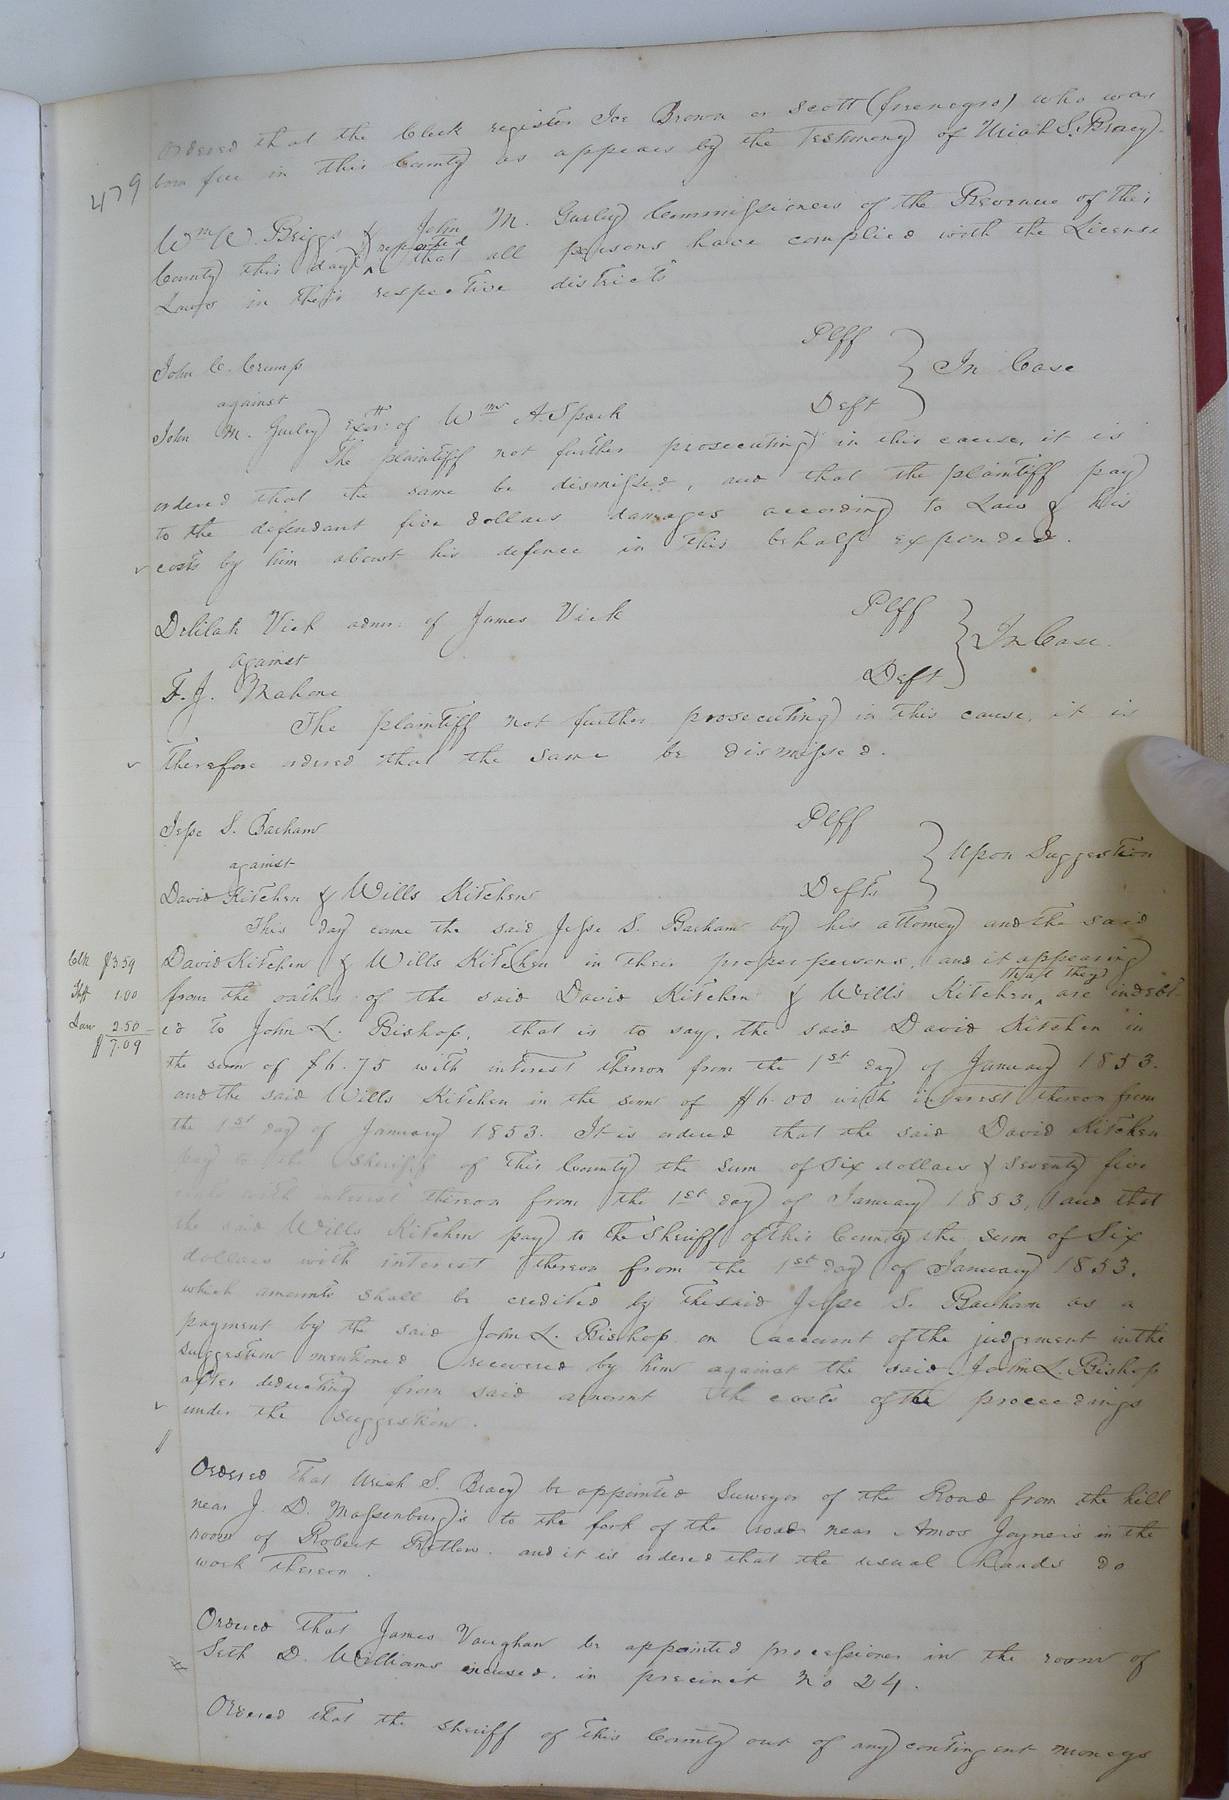 479
Ordered that the Clerk register Joe Brown or Scott (freenegro) who was
born free in this County as appears by the Testimony of Uriah S. Bracy.
Wm W. Briggs & John M. Gurley Commissioners of the Revenue of this
reported
County this day ^ that all persons have complied with the License
Laws in their respective districts
John C. Crump Plff
against In Case
John M. Gurley Exor. of Wm A. Spark Deft
The plaintiff not further prosecuting in this cause, it is
ordered that the same be dismissed, and that the plaintiff pay
to the defendant five dollars damages according to Law & his
costs by him about his defence in this behalf expended.
Delilah Vick admr. of James Vick Plff
against In Case.
T. J. Mahone Deft
The plaintiff not further prosecuting in this cause, it is
therefore ordered that the same be dismissed.
Jesse S. Barham Plff
against Upon Suggestion
David Kitchen & Wills Kitchen Defts
This day came the said Jesse S. Barham by his attorney and the said
Clk $3.59 David Kitchen & Wills Kitchen in their proper persons, and it appearing
that they
Shff 1.00 from the oaths of the said David Kitchen & Wills Kitchen ^ are indebt-
Law 2.50 ed to John L. Bishop, that is to say, the said David Kitchen in
$7.09
the sum of $6.75 with interest thereon from the 1st day of January 1853.
and the said Wills Kitchen in the sum of $6.00 with interest thereon from
the 1st day of January 1853. It is ordered that the said David Kitchen
pay to the Sheriff of this County the sum of Six dollars & seventy five
cents with interest thereon from the 1st day of January 1853, and that
the said Wills Kitchen pay to the Sheriff of this County the sum of Six
dollars with interest thereon from the 1st day of January 1853.
which amounts shall be credited by the said Jesse S. Barham as a
payment by the said John L. Bishop on account of the judgement in the
suggestion mentioned recovered by him against the said John L. Bishop
after deducting from said amount the costs of the proceedings
under the suggestion.
Ordered that Uriah S. Bracy be appointed Surveyor of the Road from the hill
near J. D. Massenburg's to the fork of the road near Amos Joyner's in the
room of Robert Ratlew. and it is ordered that the usual hands do
work thereon.
Ordered that James Vaughan be appointed processioner in the room of
Seth D. Williams excused. in precinct No 24.
Ordered that the Sheriff of this County out of any contingent moneys